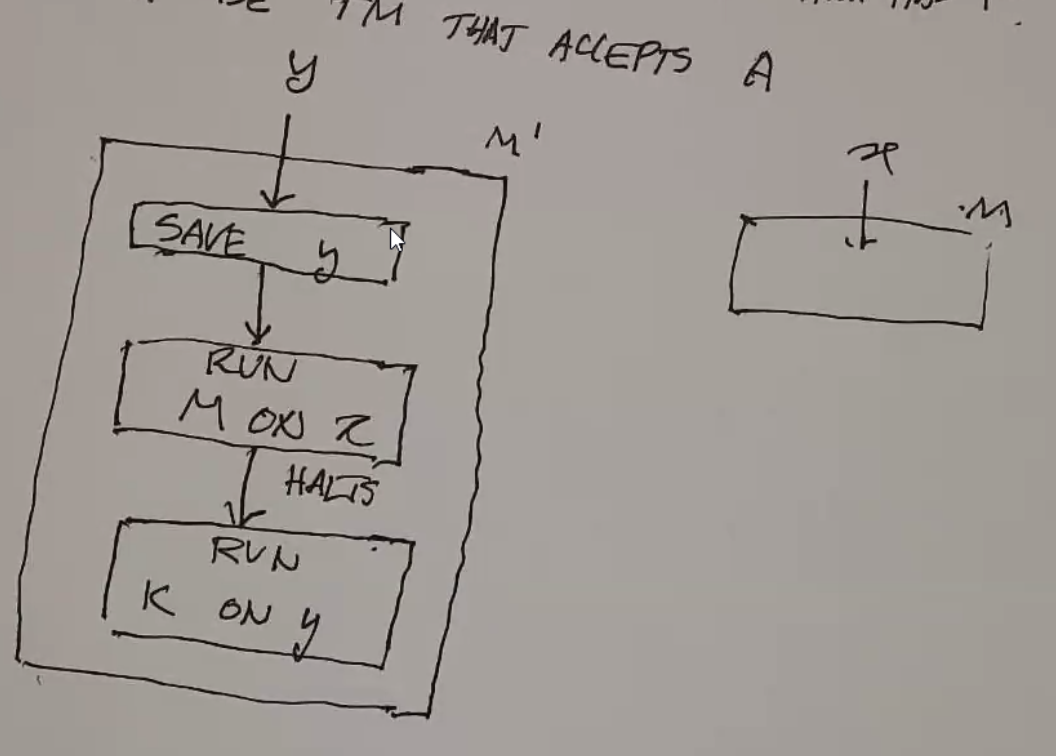 TM THAT ACCEPTS A
y
M'
x
M
SAVE y
RUN
M ON x
HALTS
RUN
K ON y